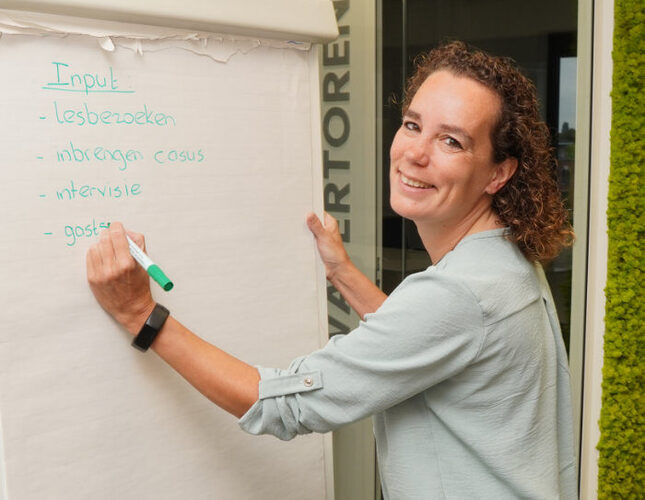 Input:
- lesbezoeken
- inbrengen casus
- intervisie
- gast
ERTOREN